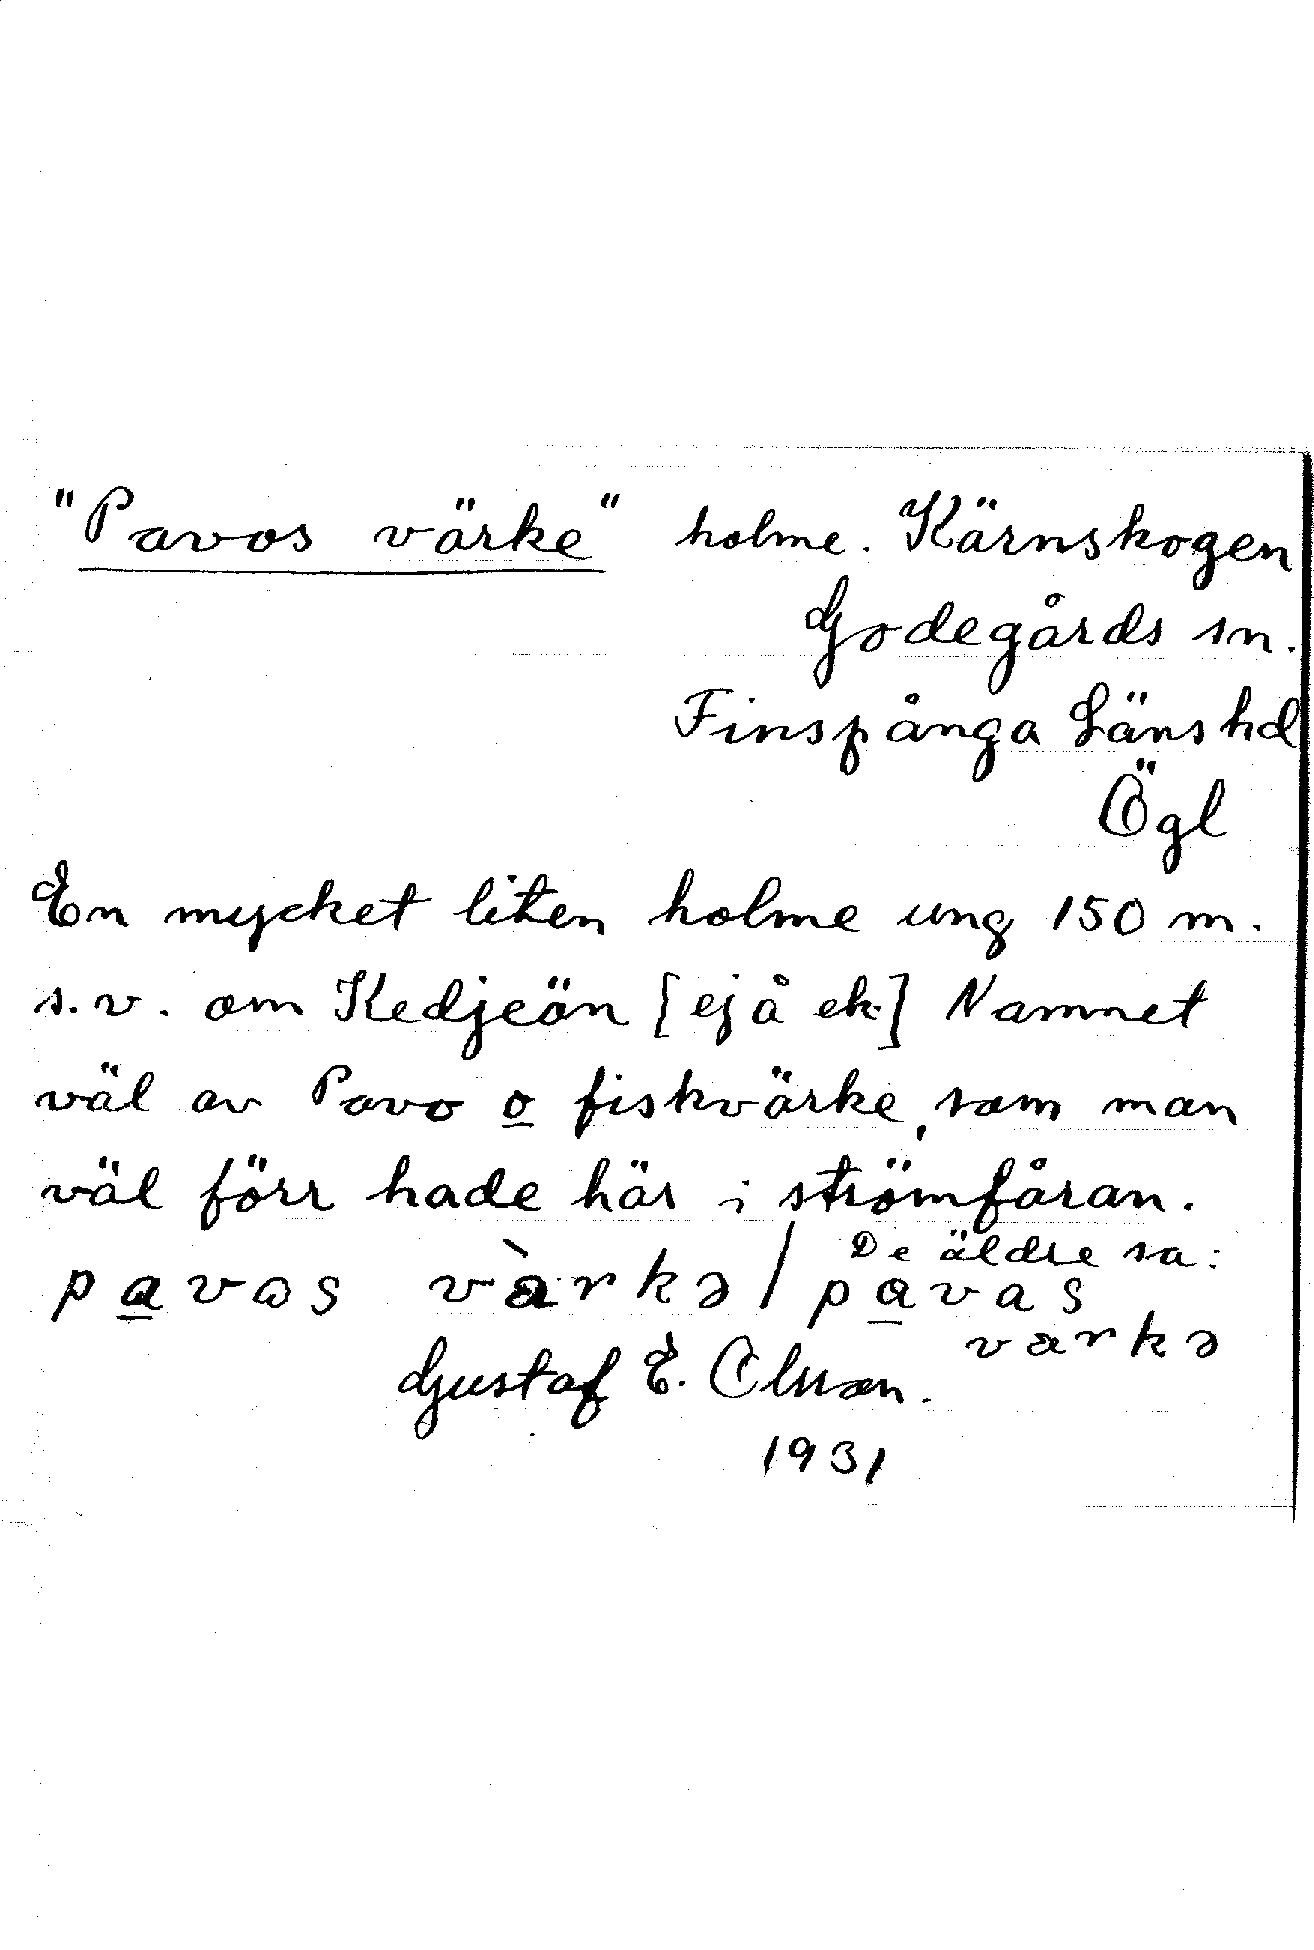 "Pavos värke" holme. Kärnskogen
Godegårds sn.
Finspånga Läns hd
Ögl
En mycket liten holme ung 150 m.
s.v. om Kedjeön [ej å ek.] Namnet
väl av Pavo o fiskvärke, som man
väl förr hade här i strömfåran.
pavas värkə / De äldre sa:
pavas
varkə
Gustaf E. Olsson.
1931